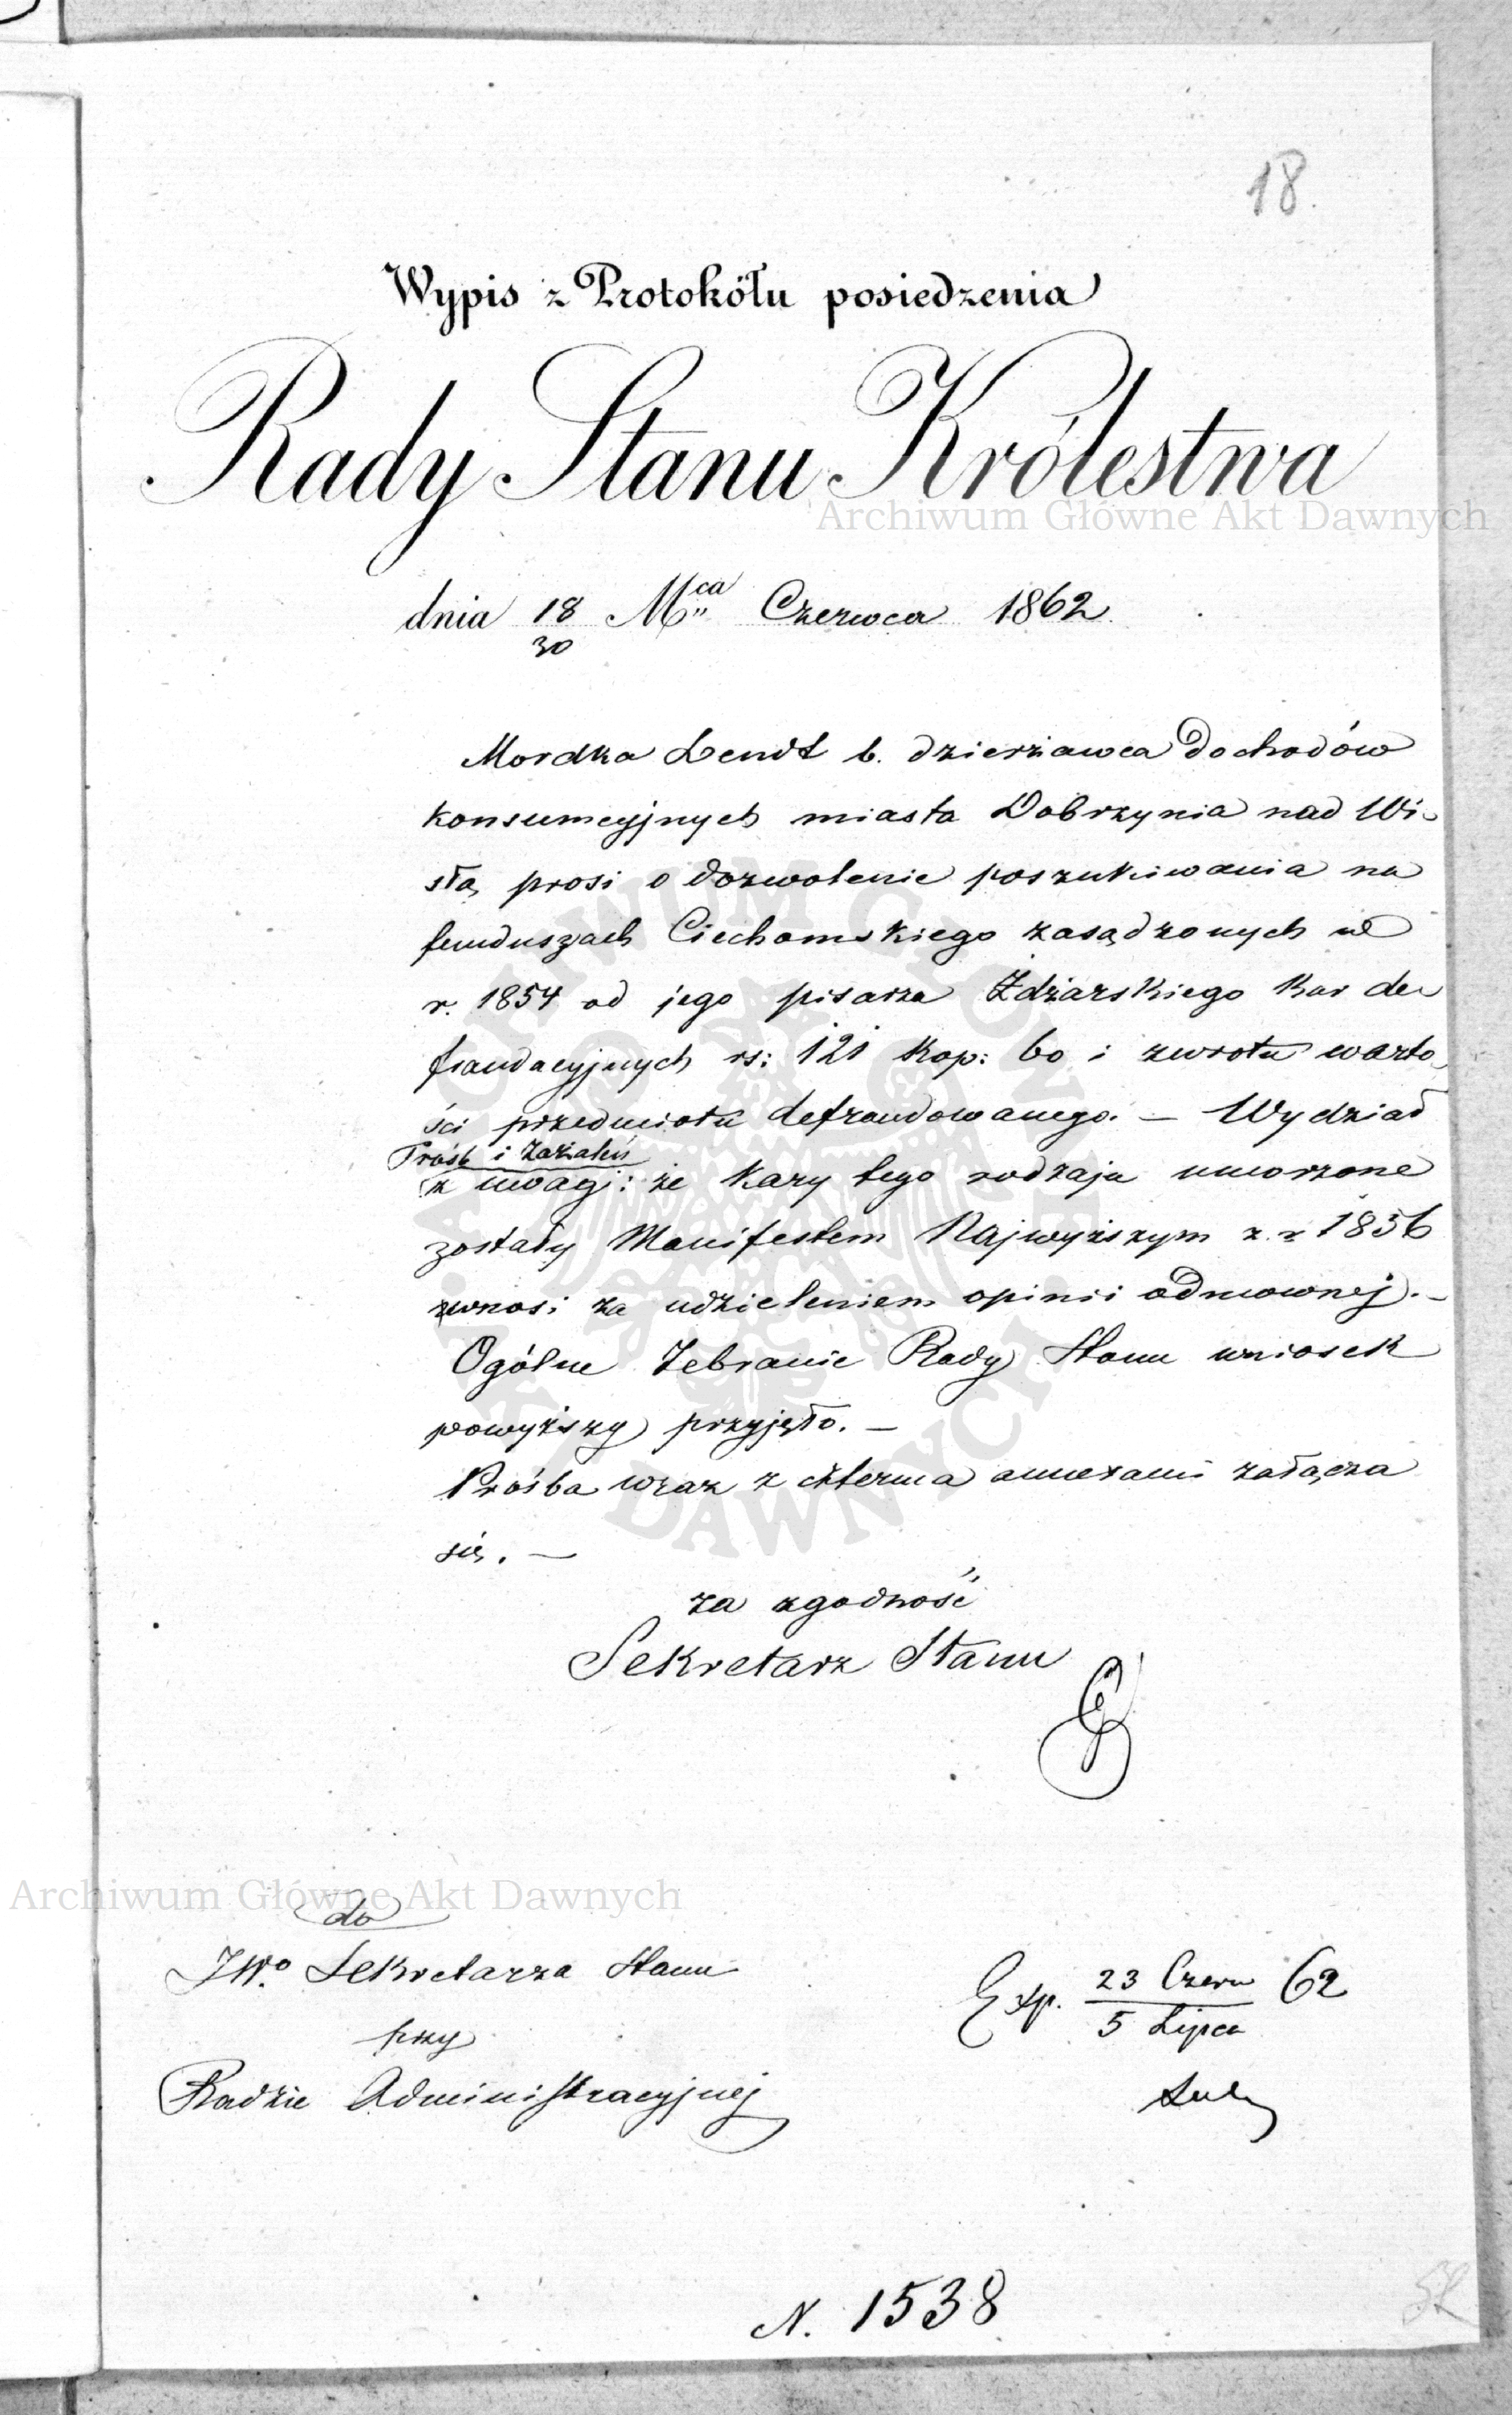 18.
Wypis z Protokółu posiedzenia
Rady Stanu Królestwa
Archiwum Główne Akt Dawnych
dnia 18/30 Mca Czerwca 1862.
Mordka Lendt b. dzierżawca dochodów
konsumcyjnych miasta Dobrzynia nad Wi-
słą, prosi o dozwolenie poszukiwania na
funduszach Ciechomskiego zasądzonych w
r. 1854 od jego pisarza Zdżarskiego kar de-
fraudacyjnych rs: 121 kop: 60 i zwrotu warto-
ści przedmiotu defraudowanego. — Wydział
Próśb i Zażaleń
z uwagi: że kary tego rodzaju umorzone
zostały Manifestem Najwyższym z r 1856
wnosi za udzieleniem opinii odmownej. —
Ogólne Zebranie Rady Stanu wniosek
powyższy przyjęło. —
Prośba wraz z czterma annexami załącza
się. —
za zgodność
Sekretarz Stanu
Archiwum Główne Akt Dawnych
do
JWo. Sekretarza Stanu
przy
Radzie Administracyjnej
Exp. 23 Czerw/5 Lipca 62
N. 1538
ARCHIWUM GŁÓWNE AKT DAWNYCH